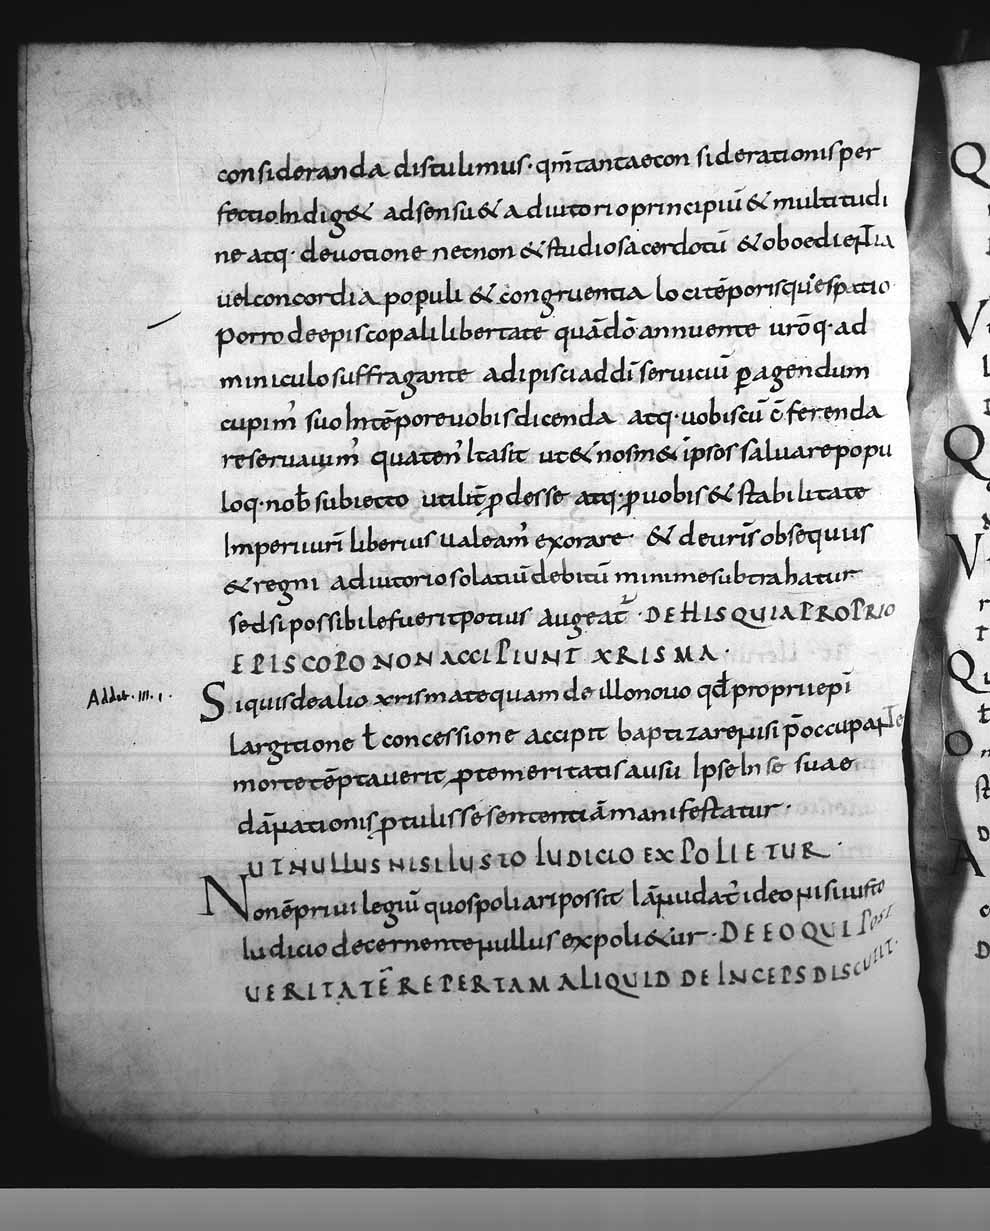 consideranda distulimus· qm̄ tantae con siderationis per
fectio Indiget & ad sensu & adiutorio principiū & multitudi
ne atq· devotione necnon & studio sacerdotū & oboedientia
uel concordia populi & congruentia loci tēporisq· & spatio
Porro de episcopali libertate quā dō annuente urōq· ad
miniculo suffragante adipisci ad dī seruiciū ꝑagendum
cupim' suo In tēpore uobis dicenda atq· uobiscū cōferenda
reseruauim' quaten' Ita sit ut & nosm& ipsos saluare popu
loq· nob subiecto utilit̄ ꝓdesse atq· ꝓ uobis & stabilitate
Imperii urī liberius ualeam' exorare· & de urīs obsequiis
& regni adiutorio solatiū debitū minime subtrahatur
sed si possibile fuerit potius augeat̄· DE HIS QUIA PROPRIO
EPISCOPO NON ACCIPIUNT XRISMA·
Addit· III· I·
Siquis de alio xrismate quam de illo nouo qđ proprii epī
Largitione ł concessione accipit baptizare nisi p̄occupante
morte tēptauerit ꝓ temeritatis ausu Ipse In se suae
dānationis ꝓtulisse sententiā manifestatur·
UT NULLUS NISI IUSTO IUDICIO EXPOLIETUR·
Non ē priuilegiū quo spoliari possit Iā nudat' ideo nisi iusto
Iudicio decernente nullus expoli&ur· DE EO QUI POST
UERITATĒ REPERTAM ALIQUID DEINCEPS DISCUTIT·